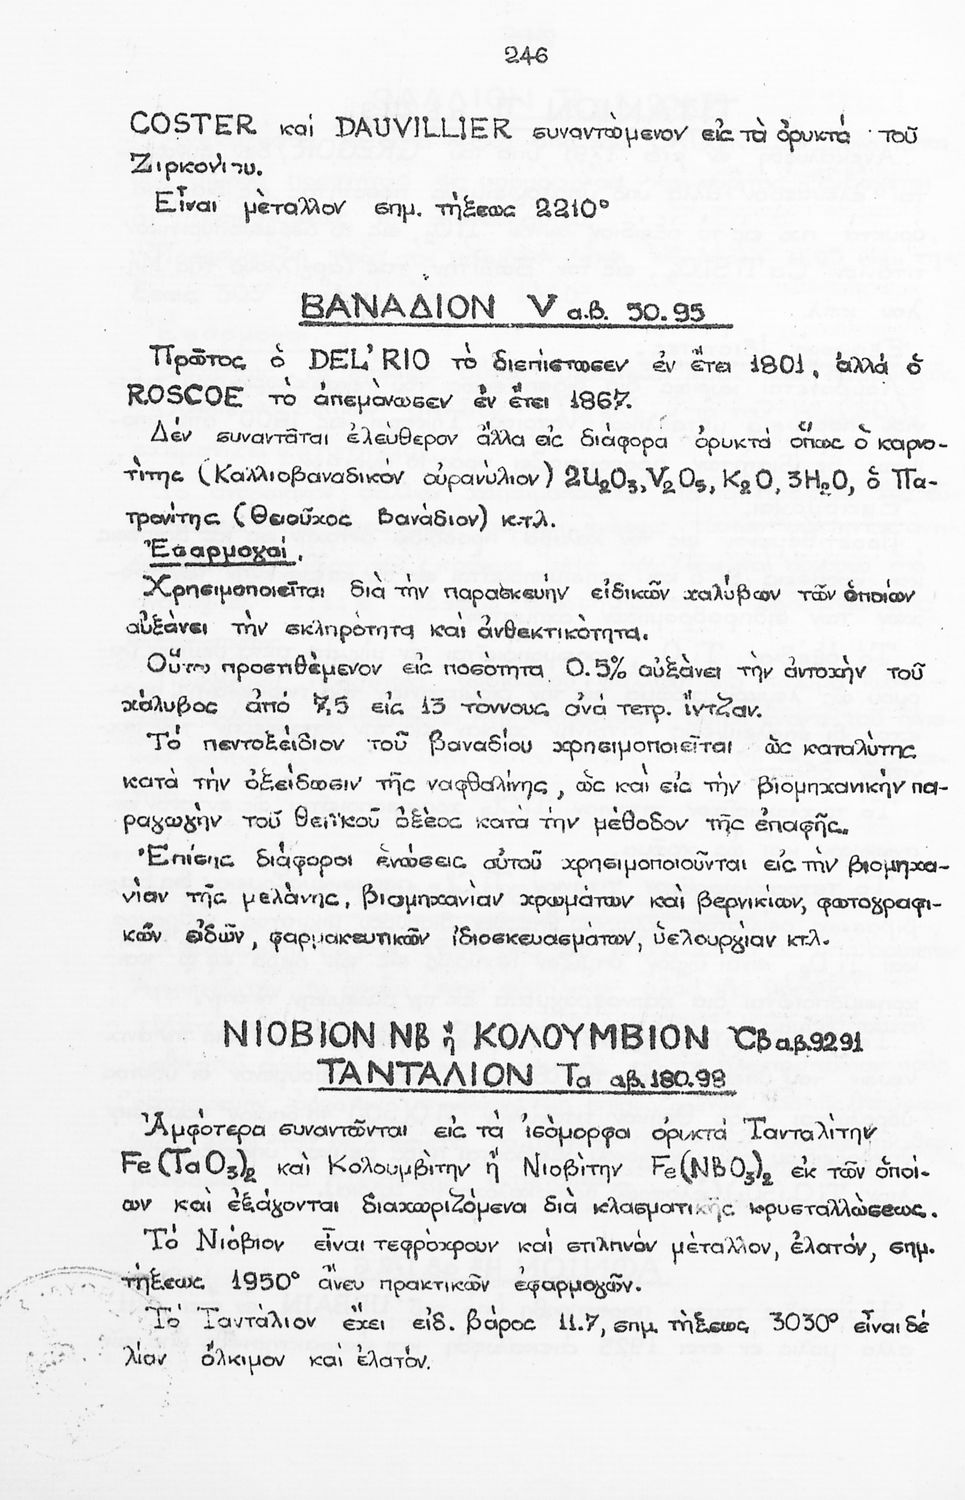 246
COSTER καί DAUVILLIER συναντώμενον εἰς τὰ ὀρυκτά τοῦ
Ζιρκονίου.
Εἶναι μέταλλον σημ. τήξεως 2210°
ΒΑΝΑΔΙΟΝ V α.β. 50.95
Πρῶτος ὁ DEL'RIO τὸ διεπίστωσεν ἐν ἔτει 1801, ἀλλά ὁ
ROSCOE τὸ ἀπεμόνωσεν ἐν ἔτει 1867.
Δέν συναντᾶται ἐλεύθερον ἄλλα εἰς διάφορα ὀρυκτά ὅπως ὁ καρνο-
τίτης (Καλλιοβαναδικόν οὐρανύλιον) 2U₂O₃, V₂O₅, K₂O, 3H₂O, ὁ Πα-
τρονίτης (Θειοῦχος Βανάδιον) κ.τ.λ.
Ἐφαρμογαί.
Χρησιμοποιεῖται διὰ τὴν παρασκευήν εἰδικῶν χαλύβων τῶν ὁποίων
αὐξάνει τὴν σκληρότητα καί ἀνθεκτικότητα.
Οὕτω προστιθέμενον εἰς ποσότητα 0.5% αὐξάνει τὴν ἀντοχήν τοῦ
χάλυβος ἀπό 7,5 εἰς 13 τόννους ἀνά τετρ. ἴντζαν.
Τό πεντοξείδιον τοῦ βαναδίου χρησιμοποιεῖται ὡς καταλύτης
κατά τήν ὀξείδωσιν τῆς ναφθαλίνης, ὡς καί εἰς τὴν βιομηχανικήν πα-
ραγωγήν τοῦ θειϊκοῦ ὀξέος κατά τήν μέθοδον τῆς ἐπαφῆς.
Ἐπίσης διάφοροι ἑνώσεις αὐτοῦ χρησιμοποιοῦνται εἰς τὴν βιομηχα-
νίαν τῆς μελάνης, βιομηχανίαν χρωμάτων καί βερνικίων, φωτογραφι-
κῶν εἰδῶν, φαρμακευτικῶν ἰδιοσκευασμάτων, ὑελουργίαν κτλ.
ΝΙΟΒΙΟΝ Νβ ἤ ΚΟΛΟΥΜΒΙΟΝ Cβ α.β. 92 91
ΤΑΝΤΑΛΙΟΝ Τα αβ. 180.98
Ἀμφότερα συναντῶνται εἰς τὰ ἰσόμορφα ὀρυκτά Τανταλίτην
Fe(TaO₃)₂ καί Κολουμβίτην ἤ Νιοβίτην Fe(NBO₃)₂ ἐκ τῶν ὁποί-
ων καί ἐξάγονται διαχωριζόμενα διά κλασματικῆς κρυσταλλώσεως.
Τό Νιόβιον εἶναι τεφρόχρουν καί στιλπνόν μέταλλον, ἐλατόν, σημ.
τήξεως 1950° ἄνευ πρακτικῶν ἐφαρμογῶν.
Τό Ταντάλιον ἔχει εἰδ. βάρος 11.7, σημ. τήξεως 3030° εἶναι δέ
λίαν ὅλκιμον καί ἐλατόν.